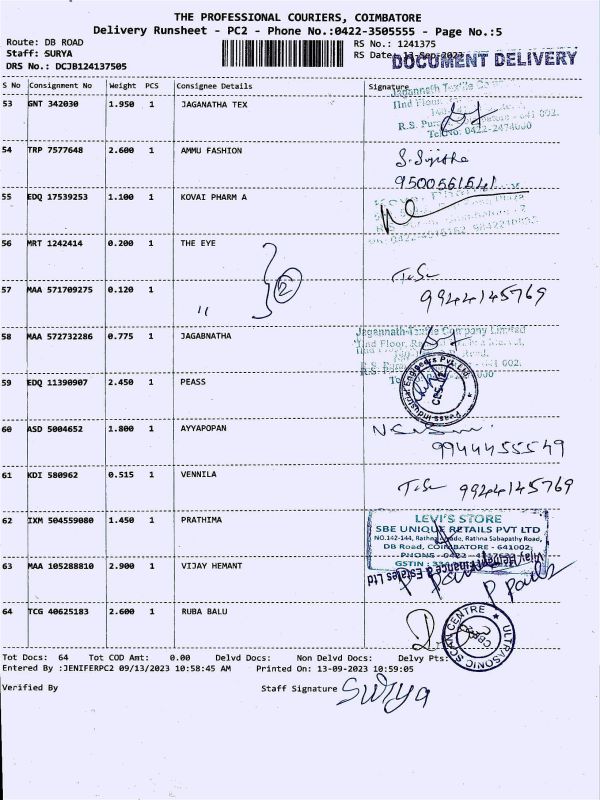 THE PROFESSIONAL COURIERS, COIMBATORE
Delivery Runsheet - PC2 - Phone No.:0422-3505555 - Page No.:5
Route: DB ROAD
RS No.: 1241375
Staff: SURYA
RS Date: 13-Sep-2023
DOCUMENT DELIVERY
DRS No.: DCJB124137505
S No Consignment No Weight PCS Consignee Details Signature
53 GNT 342030 1.950 1 JAGANATHA TEX
IInd Floor
R.S. Pur
Tel No: 0422-2474000
54 TRP 7577648 2.600 1 AMMU FASHION
S. Sujitha
9500561541
55 EDQ 17539253 1.100 1 KOVAI PHARM A
56 MRT 1242414 0.200 1 THE EYE
2
57 MAA 571709275 0.120 1 "
9944145769
58 MAA 572732286 0.775 1 JAGABNATHA
Jagannath Textile Company Limited
IInd Floor,
59 EDQ 11390907 2.450 1 PEASS
Peass Industrial Engineers Pvt. Ltd.
CBE-12
60 ASD 5004652 1.800 1 AYYAPOPAN
9944455549
61 KDI 580962 0.515 1 VENNILA
9944145769
62 IXM 504559080 1.450 1 PRATHIMA
LEVI'S STORE
SBE UNIQUE RETAILS PVT LTD
NO.142-144, Rathna Sabapathy Road,
DB Road, COIMBATORE - 641002,
PHONE
GSTIN : 33
63 MAA 105288810 2.900 1 VIJAY HEMANT
Vijay Hemant Finance & Estates Ltd
64 TCG 40625183 2.600 1 RUBA BALU
ULTRASONIC SCAN CENTRE
Tot Docs: 64 Tot COD Amt: 0.00 Delvd Docs: Non Delvd Docs: Delvy Pts:
Entered By :JENIFERPC2 09/13/2023 10:58:45 AM Printed On: 13-09-2023 10:59:05
Verified By
Staff Signature Surya